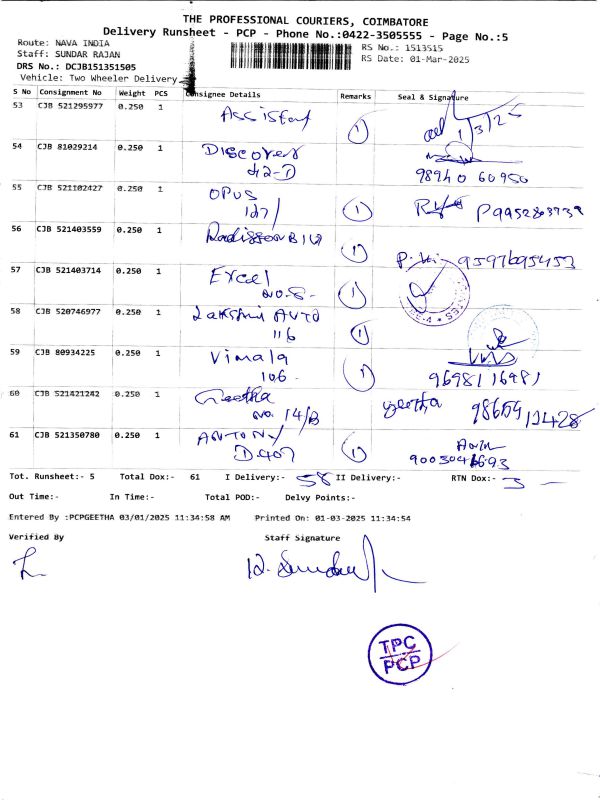 THE PROFESSIONAL COURIERS, COIMBATORE
Delivery Runsheet - PCP - Phone No.:0422-3505555 - Page No.:5
Route: NAVA INDIA
RS No.: 1513515
Staff: SUNDAR RAJAN
RS Date: 01-Mar-2025
DRS No.: DCJB151351505
Vehicle: Two Wheeler Delivery
S No Consignment No Weight PCS Consignee Details Remarks Seal & Signature
53 CJB 521295977 0.250 1 1 1/3/25
54 CJB 81029214 0.250 1 Discover
42-D 98940 60950
55 CJB 521102427 0.250 1 OPUS
127/ 1
56 CJB 521403559 0.250 1 Radisson Blu 1 9597695453
57 CJB 521403714 0.250 1 Excel
NO.8- 1
58 CJB 520746977 0.250 1 Lakshmi AUTO
116 1
59 CJB 80934225 0.250 1 Vimala
106. 1 9698116481
60 CJB 521421242 0.250 1 Geetha geetha
No. 14/B
61 CJB 521350780 0.250 1 ANTONY
D407 1
Tot. Runsheet:- 5 Total Dox:- 61 I Delivery:- 58 II Delivery:- RTN Dox:- 3
Out Time:- In Time:- Total POD:- Delvy Points:-
Entered By :PCPGEETHA 03/01/2025 11:34:58 AM Printed On: 01-03-2025 11:34:54
Verified By Staff Signature
TPC
PCP